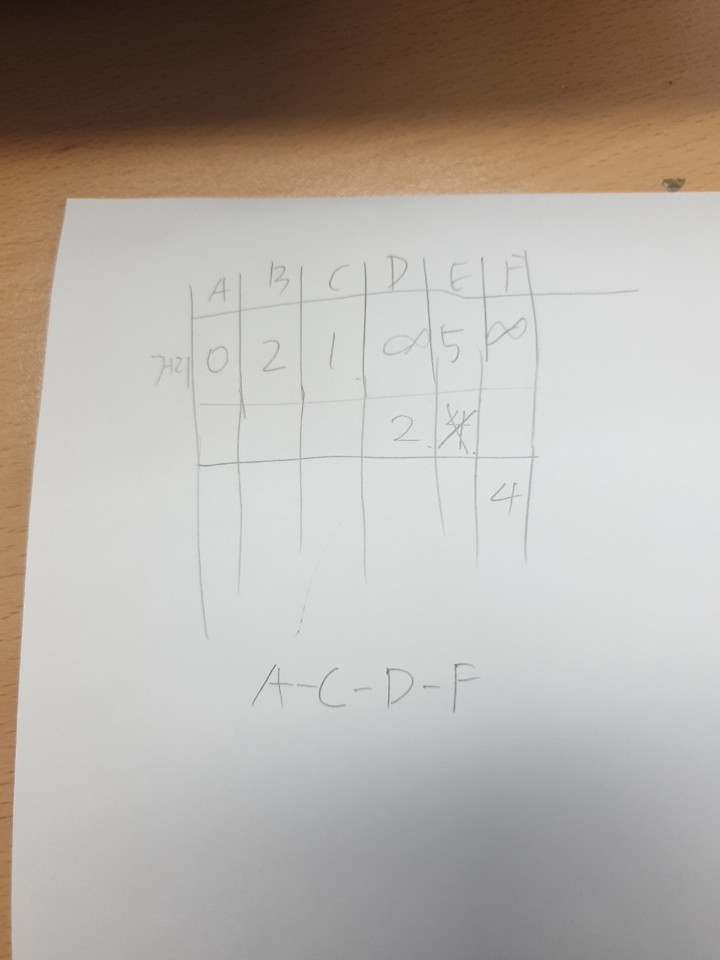 A B C D E F
거리 0 2 1 ∞ 5 ∞
2
4
A-C-D-F